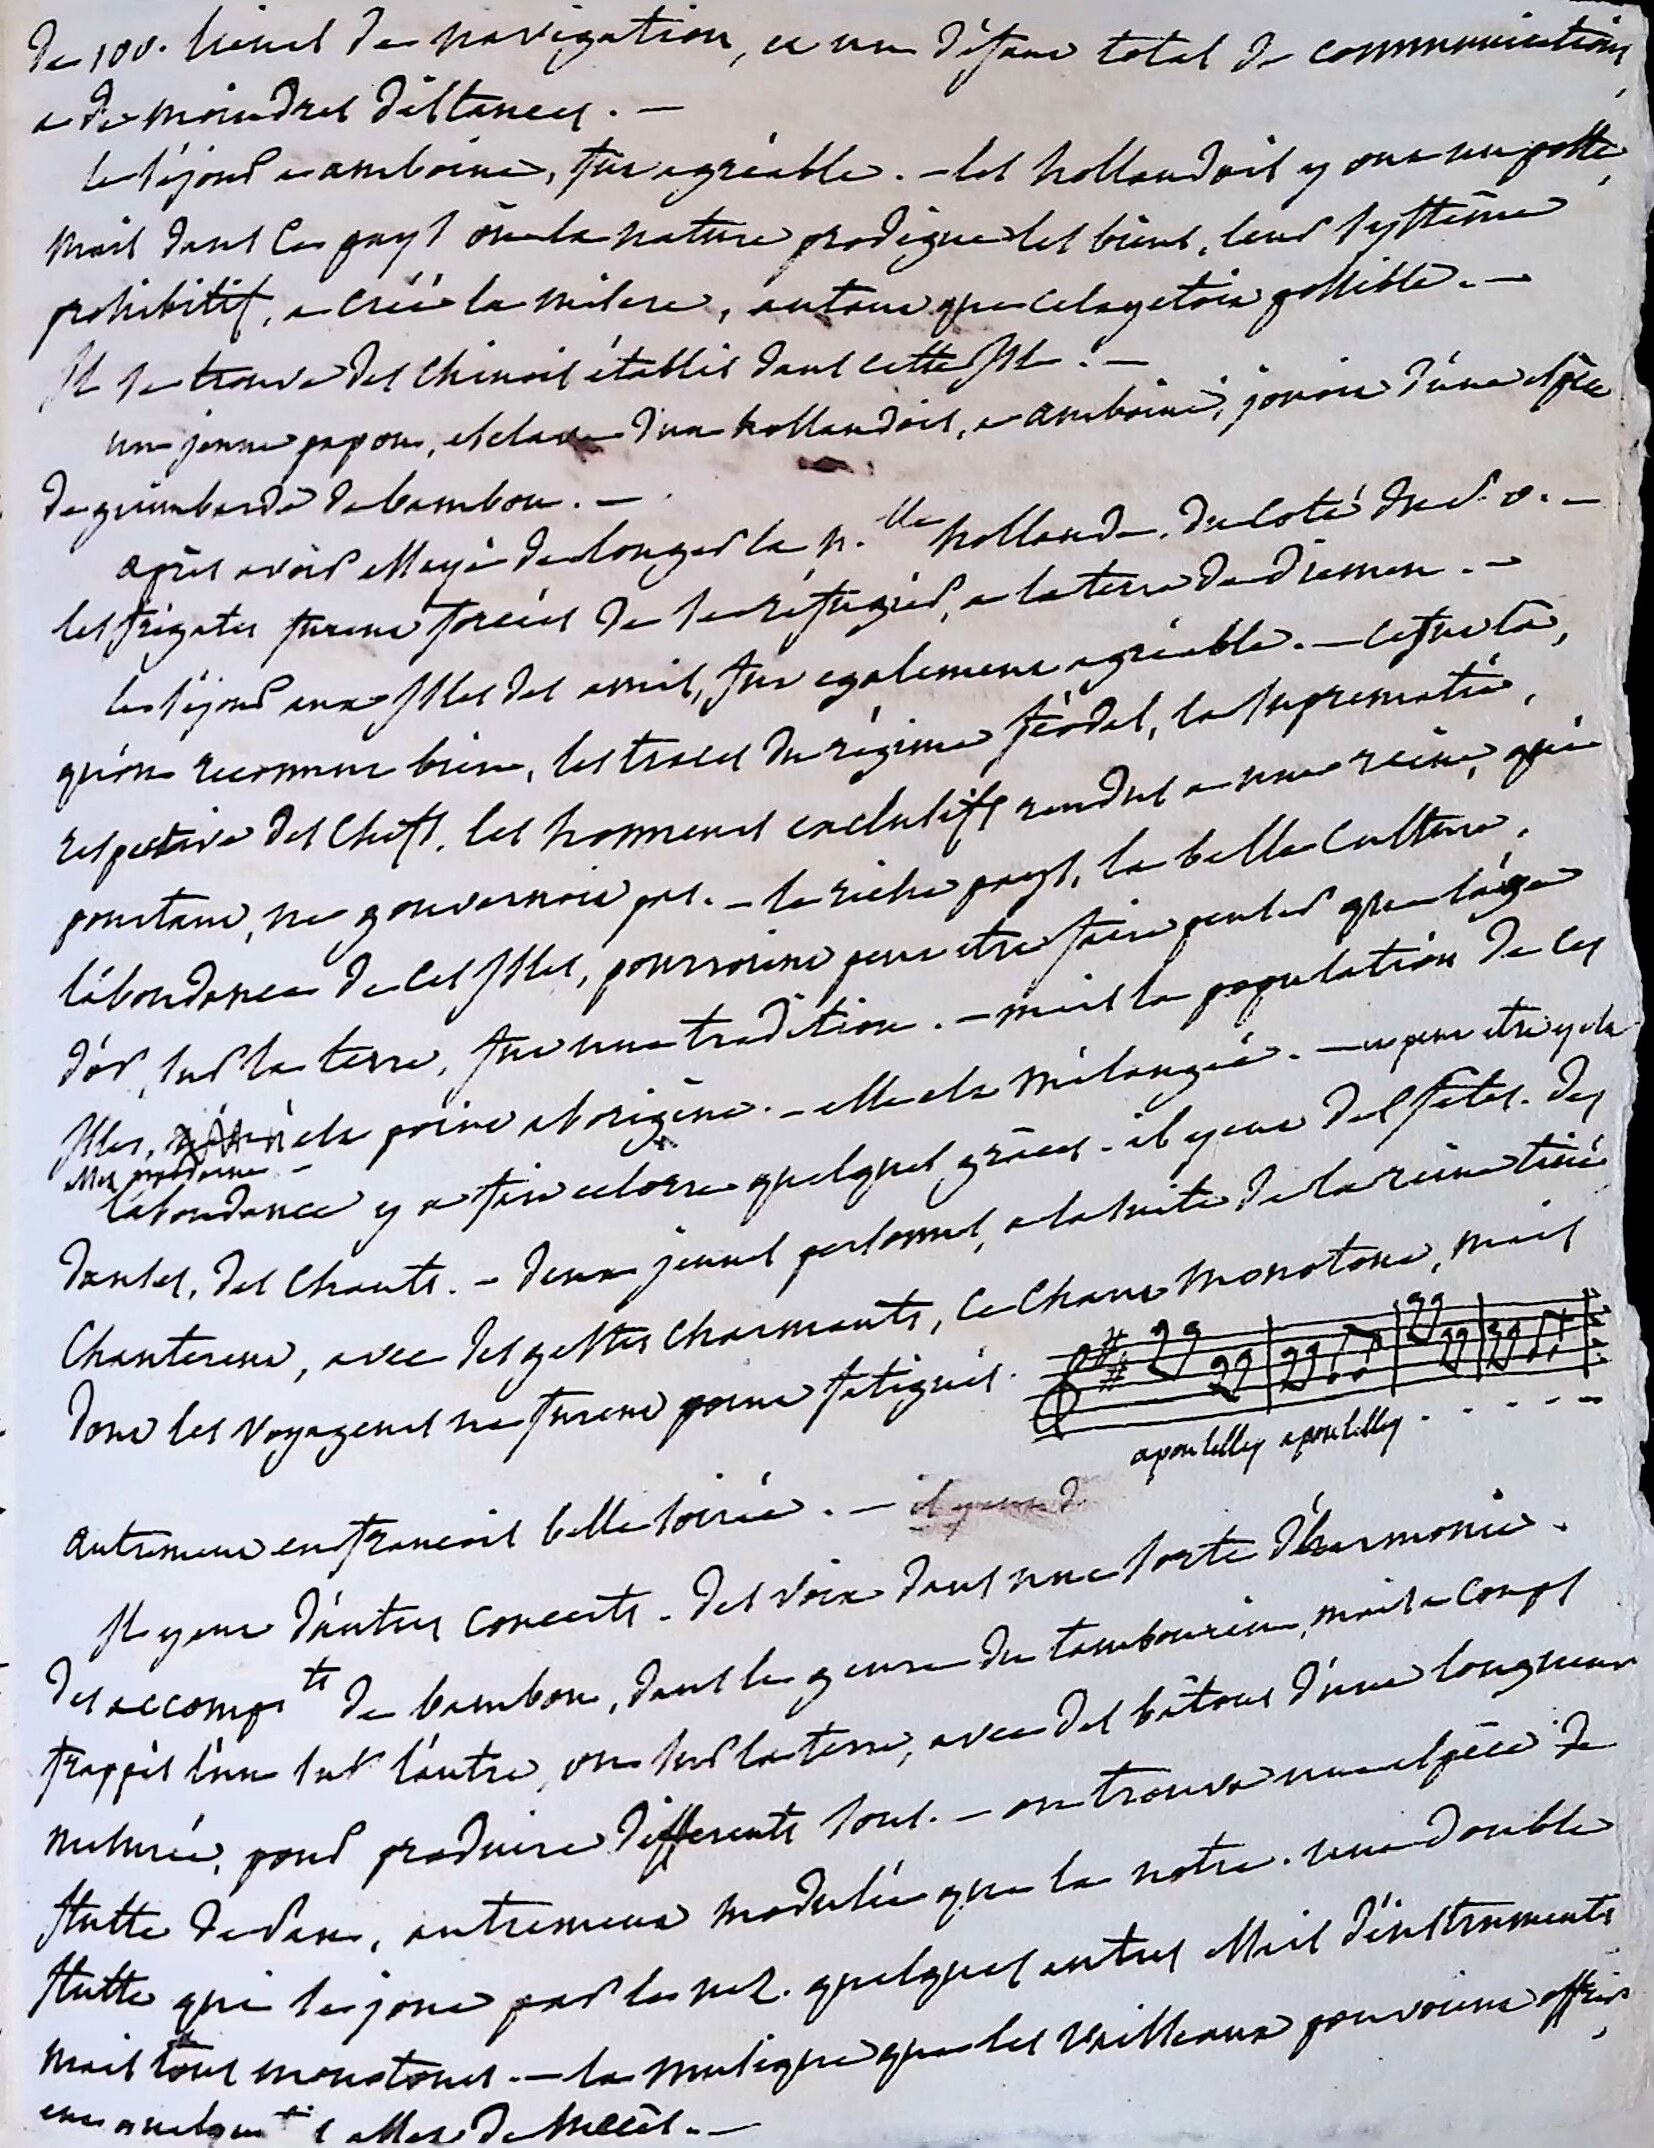 de 100. lieues de navigation, et un défaut total de communications
a de moindres distances. —
le séjour a amboine, fut agréable. — les hollandois y ont un poste,
mais dans ce pays où la nature prodigue les biens, leur systême
prohibitif, a créé la misere, autant que cela y etoit possible. —
Il se trouve des chinois établis dans cette Isle. —
un jeune papou, esclave d'un hollandois, a amboine, jouoit d'une espèce
de guimbarde de bambou. —
après avoir essayé de longer la n.lle hollande, du coté du s. o. —
les frégates furent forcées de se réfugier, a la terre de diemen. —
le séjour aux Isles des amis, fut egalement agréable. — ce fut là,
qu'on reconnut bien, les traces du régime féodal, la suprematie,
respective des chefs, les honneurs exclusifs rendus a une reine, qui
pourtant, ne gouvernoit pas. — le riche pays, la belle culture,
l'abondance de ces Isles, pourroient peut etre faire penser que l'age
d'or, sur la terre, fut une tradition. — mais la population de ces
Isles, n'est point aborigène. — elle est mélangée. — et peut etre y est
assez moderne —
l'abondance y a fait eclorre quelques grâces. il y eut des fêtes. des
danses, des chants. — deux jeunes personnes, a la suite de la reine tiné
chanterent, avec des gestes charmants, ce chant monotone, mais
dont les voyageurs ne furent point fatigués.
apoulelley apoulelley . . . . . .
autrement en françois belle soirée. — il y eut d
Il y eut d'autres concerts. des voix dans une sorte d'harmonie.
des accompts de bambou, dans le genre du tambourin, mais a coups
frappés l'un sur l'autre, ou sur la terre, avec des bâtons d'une longueur
mesurée, pour produire différents sons. — on trouva une espèce de
flutte de pan, autrement modulée que la notre. une double
flutte qui se joue par le nez. quelques autres essais d'instruments
mais tous monotones. — la musique que les vaisseaux pouvoient offrir,
eut quelquef.s assez de succès. —